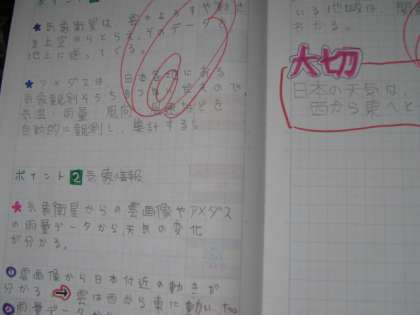 ポイント1
★気象衛星は 雲のようすや動き
を上空からとらえ、そのデータを
地上に送ってくる。
★アメダスは 日本各地にある
気象観測そうちをつなぐ
気温・雨量・風向・風速などを
自動的に観測し、集計する。
ポイント2 気象情報
★気象衛星からの雲画像やアメダス
の雨量データから天気の変化
が分かる。
❶雲画像から日本付近の動きが
分かる→雲は西から東に動いた。
❷雨量データから
いる地域は
わかる。
大切
日本の天気は、
西から東へと